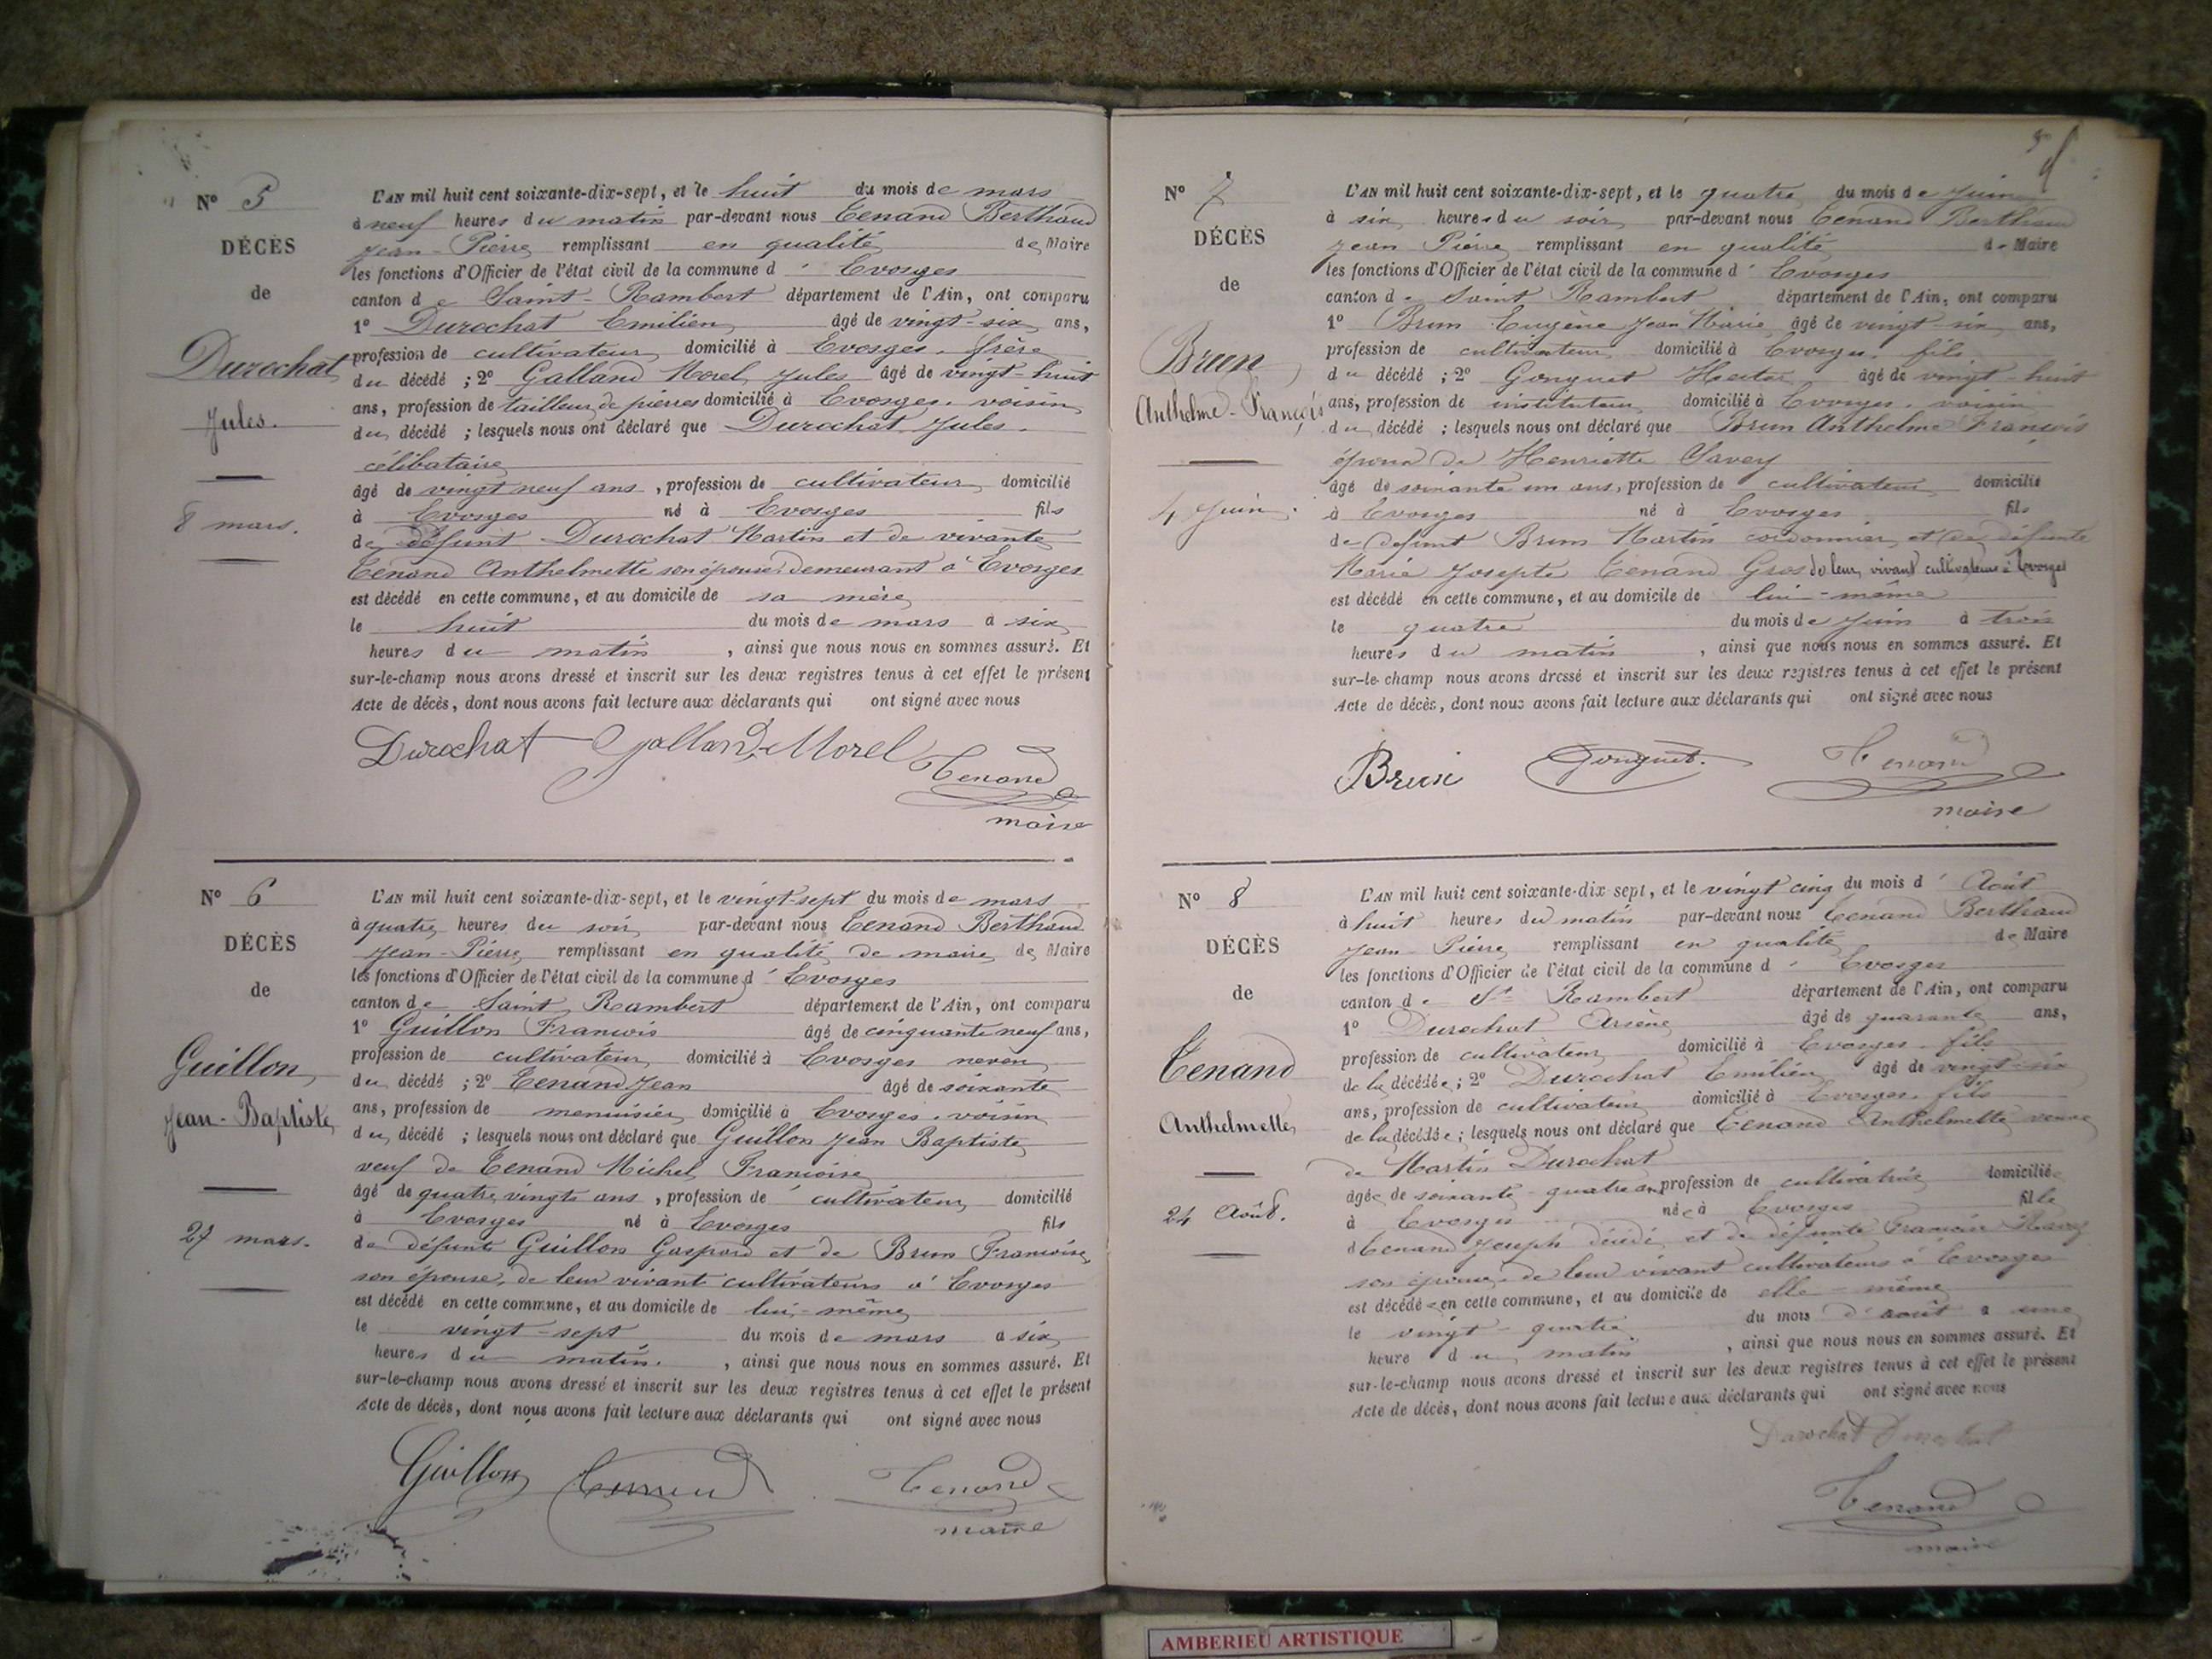 N° 5
DÉCÈS
de
Durochat
Jules.
8 mars.
L'AN mil huit cent soixante-dix-sept, et le huit du mois de mars
à neuf heures du matin par-devant nous Tenand Berthaud
Jean-Pierre remplissant en qualité de Maire
les fonctions d'Officier de l'état civil de la commune d'Evosges
canton de Saint-Rambert département de l'Ain, ont comparu
1° Durochat Emilien âgé de vingt-six ans,
profession de cultivateur domicilié à Evosges, frère
du décédé ; 2° Galland Morel Jules âgé de vingt-huit
ans, profession de tailleur de pierres domicilié à Evosges, voisin
du décédé ; lesquels nous ont déclaré que Durochat Jules,
célibataire
âgé de vingt neuf ans, profession de cultivateur domicilié
à Evosges né à Evosges fils
de défunt Durochat Martin et de vivante
Tenand Anthelmette son épouse demeurant à Evosges
est décédé en cette commune, et au domicile de sa mère
le huit du mois de mars à six
heures du matin, ainsi que nous nous en sommes assuré. Et
sur-le-champ nous avons dressé et inscrit sur les deux registres tenus à cet effet le présent
Acte de décès, dont nous avons fait lecture aux déclarants qui ont signé avec nous
Durochat Galland-Morel Tenand
maire
N° 6
DÉCÈS
de
Guillon
Jean-Baptiste
27 mars.
L'AN mil huit cent soixante-dix-sept, et le vingt-sept du mois de mars
à quatre heures du soir par-devant nous Tenand Berthaud
Jean-Pierre remplissant en qualité de maire de Maire
les fonctions d'Officier de l'état civil de la commune d'Evosges
canton de Saint Rambert département de l'Ain, ont comparu
1° Guillon Francois âgé de cinquante neuf ans,
profession de cultivateur domicilié à Evosges neveu
du décédé ; 2° Tenand Jean âgé de soixante
ans, profession de menuisier domicilié à Evosges, voisin
du décédé ; lesquels nous ont déclaré que Guillon Jean Baptiste
veuf de Tenand Michel Francoise
âgé de quatre vingts ans, profession de cultivateur domicilié
à Evosges né à Evosges fils
de défunts Guillon Gaspard et de Brun Francoise
son épouse, de leur vivant cultivateurs à Evosges
est décédé en cette commune, et au domicile de lui-même
le vingt-sept du mois de mars à six
heures du matin, ainsi que nous nous en sommes assuré. Et
sur-le-champ nous avons dressé et inscrit sur les deux registres tenus à cet effet le présent
Acte de décès, dont nous avons fait lecture aux déclarants qui ont signé avec nous
Guillon Tenand Tenand
maire
N° 7
DÉCÈS
de
Brun
Anthelme-François
4 Juin.
L'AN mil huit cent soixante-dix-sept, et le quatre du mois de Juin
à six heures du soir par-devant nous Tenand Berthaud
Jean Pierre remplissant en qualité de Maire
les fonctions d'Officier de l'état civil de la commune d'Evosges
canton de Saint Rambert département de l'Ain, ont comparu
1° Brun Eugène Jean Marie âgé de vingt-six ans,
profession de cultivateur domicilié à Evosges, fils
du décédé ; 2° Gonguet âgé de vingt-huit
ans, profession de instituteur domicilié à Evosges, voisin
du décédé ; lesquels nous ont déclaré que Brun Anthelme François
époux de Henriette Savey
âgé de soixante un ans, profession de cultivateur domicilié
à Evosges né à Evosges fils
de défunt Brun Martin cordonnier et de défunte
Marie Josepte Tenand Gros de leur vivant cultivateurs à Evosges
est décédé en cette commune, et au domicile de lui-même
le quatre du mois de Juin à trois
heures du matin, ainsi que nous nous en sommes assuré. Et
sur-le-champ nous avons dressé et inscrit sur les deux registres tenus à cet effet le présent
Acte de décès, dont nous avons fait lecture aux déclarants qui ont signé avec nous
Brun Gonguet. Tenand
maire
N° 8
DÉCÈS
de
Tenand
Anthelmette
24 Août.
L'AN mil huit cent soixante-dix-sept, et le vingt cinq du mois d'Août
à huit heures du matin par-devant nous Tenand Berthaud
Jean-Pierre remplissant en qualité de Maire
les fonctions d'Officier de l'état civil de la commune d'Evosges
canton de St Rambert département de l'Ain, ont comparu
1° Durochat Arsène âgé de quarante ans,
profession de cultivateur domicilié à Evosges, fils
de la décédée ; 2° Durochat Emilien âgé de vingt-six
ans, profession de cultivateur domicilié à Evosges, fils
de la décédée ; lesquels nous ont déclaré que Tenand Anthelmette veuve
de Martin Durochat
âgée de soixante-quatre ans, profession de cultivatrice domiciliée
à Evosges née à Evosges fille
de Tenand Joseph décédé et de défunte Françoise
son épouse, de leur vivant cultivateurs à Evosges
est décédée en cette commune, et au domicile de elle-même
le vingt-quatre du mois d'août à une
heure du matin, ainsi que nous nous en sommes assuré. Et
sur-le-champ nous avons dressé et inscrit sur les deux registres tenus à cet effet le présent
Acte de décès, dont nous avons fait lecture aux déclarants qui ont signé avec nous
Durochat Durochat
Tenand
maire
AMBERIEU ARTISTIQUE